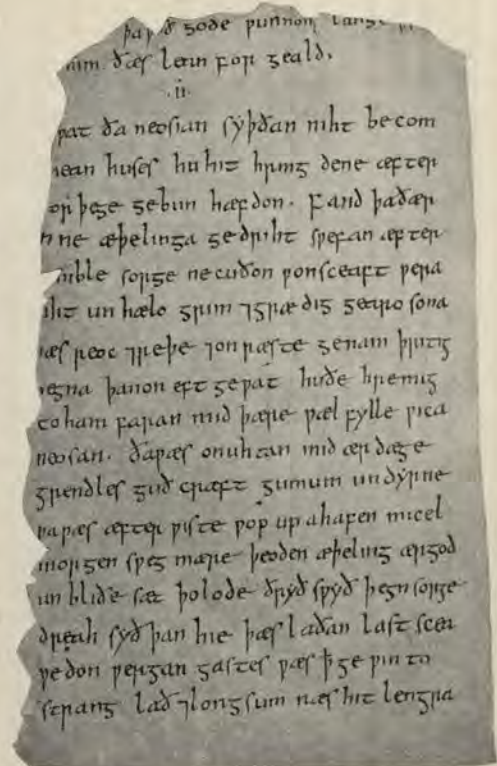 þa ƿið gode ƿunnon lange
him ðæs lean for geald.
·ii·
ƿat ða neosian syþðan niht be com
hean huses hu hit hring dene æfter
or þege gebun hæfdon. Fand þa ðær
nne æþelinga gedriht sƿefan æfter
mble sorge ne cuðon ƿonsceaft ƿera
iht un hælo grim ⁊grædig gearo sona
æs reoc ⁊reþe ⁊on ræste genam þritig
egna þanon eft geƿat huðe hremig
to ham faran mid þære ƿæl fylle ƿica
neosan. ða ƿæs on uhtan mid ær dæge
grendles guð cræft gumum un dyrne
þa ƿæs æfter ƿiste ƿop up ahafen micel
morgen sƿeg mære þeoden æþeling ærgod
un bliðe sæt þolode ðryð sƿyð þegn sorge
dreah syðþan hie þæs laðan last scea
ƿedon ƿergan gastes ƿæs ꝥ ge ƿin to
strang lað ⁊longsum næs hit lengra